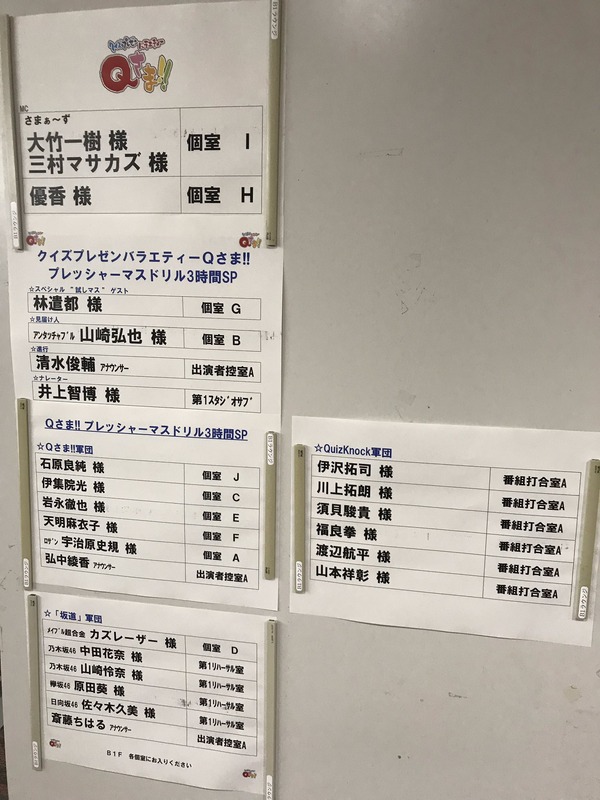 Qさま!!
MC
さまぁ～ず
大竹一樹 様
三村マサカズ 様
個室 I
優香 様
個室 H
クイズプレゼンバラエティーQさま!!
プレッシャーマスドリル3時間SP
☆スペシャル “試しマス” ゲスト
林遣都 様
個室 G
☆見届け人
アンタッチャブル 山崎弘也 様
個室 B
☆進行
清水俊輔 アナウンサー
出演者控室A
☆ナレーター
井上智博 様
第1スタジオサブ
Qさま!! プレッシャーマスドリル3時間SP
☆Qさま!!軍団
石原良純 様
個室 J
伊集院光 様
個室 C
岩永徹也 様
個室 E
天明麻衣子 様
個室 F
ロザン 宇治原史規 様
個室 A
弘中綾香 アナウンサー
出演者控室A
☆「坂道」軍団
メイプル超合金 カズレーザー 様
個室 D
乃木坂46 中田花奈 様
第1リハーサル室
乃木坂46 山崎怜奈 様
第1リハーサル室
欅坂46 原田葵 様
第1リハーサル室
日向坂46 佐々木久美 様
第1リハーサル室
斎藤ちはる アナウンサー
出演者控室A
B1F 各個室にお入りください
☆QuizKnock軍団
伊沢拓司 様
番組打合室A
川上拓朗 様
番組打合室A
須貝駿貴 様
番組打合室A
福良拳 様
番組打合室A
渡辺航平 様
番組打合室A
山本祥彰 様
番組打合室A
B1ラウンジ